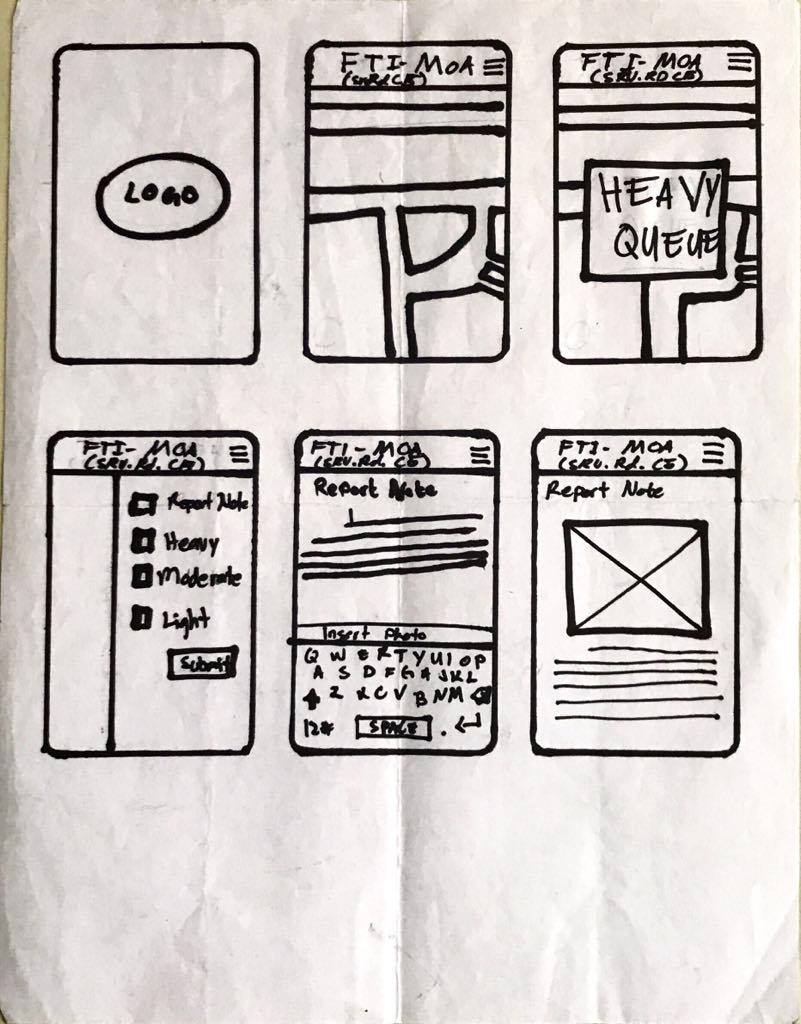 LOGO
FTI- MOA
FTI- MOA
(SRV.RD CE)
HEAVY
QUEUE
FTI- MOA
(SRV. Rd. CE)
Report Note
Heavy
Moderate
Light
Submit
FTI - MOA
(SRV. Rd. CE)
Report Note
Insert Photo
Q W E R T Y U I O P
A S D F G H J K L
Z X C V B N M
12#
SPACE
.
FTI- MOA
(SRV. Rd. CE)
Report Note